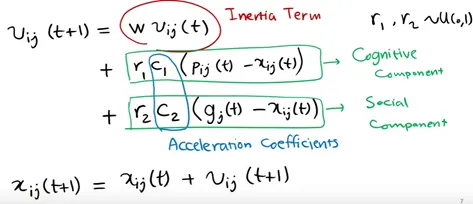 υij (t+1) = w υij(t) Inertia Term r1, r2 ~U(0,1)
+ r1 c1 (pij(t) − xij(t)) → Cognitive Component
+ r2 C2 (gj(t) − xij(t)) → Social Component
Acceleration Coefficients
xij(t+1) = xij(t) + υij (t+1)
7